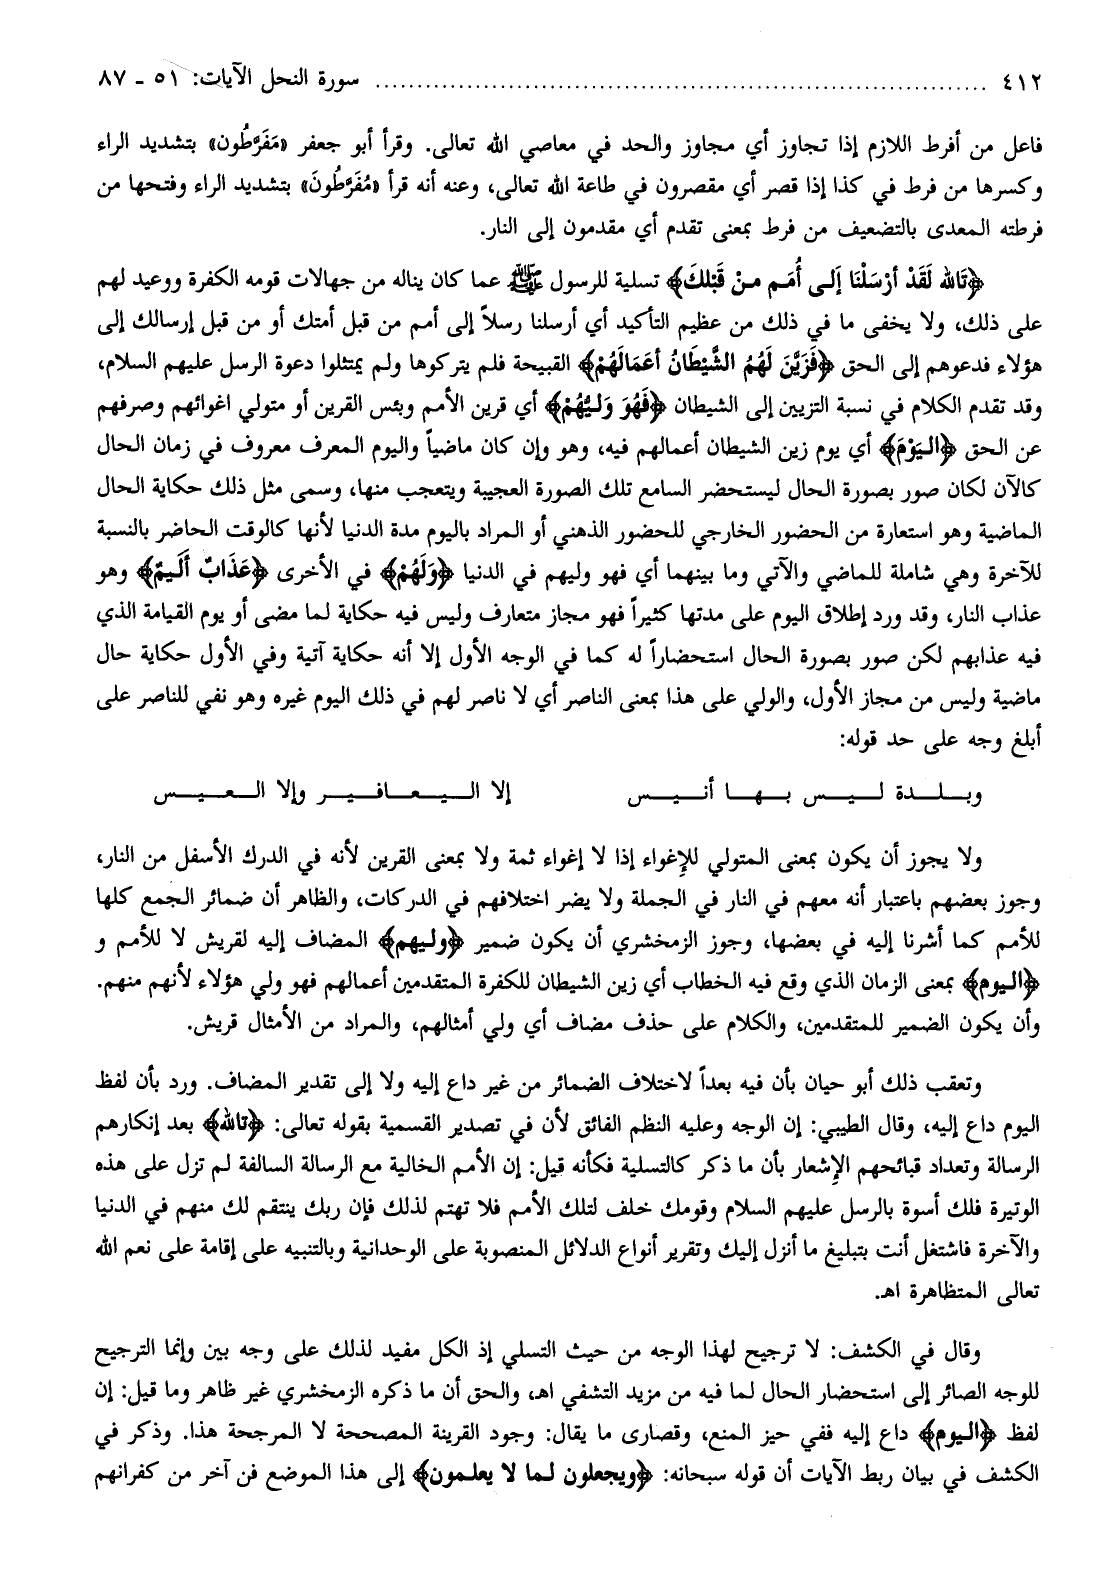 ٤١٢ ........ سورة النحل الآيات: ٥١ - ٨٧
فاعل من أفرط اللازم إذا تجاوز أي مجاوز والحد في معاصي الله تعالى. وقرأ أبو جعفر «مَفَرِّطُون» بتشديد الراء
وكسرها من فرط في كذا إذا قصر أي مقصرون في طاعة الله تعالى، وعنه أنه قرأ «مُفَرَّطُونَ» بتشديد الراء وفتحها من
فرطته المعدى بالتضعيف من فرط بمعنى تقدم أي مقدمون إلى النار.
﴿تَالله لَقَدْ أرْسَلْنَا إلَى أُمَم منْ قَبْلكَ﴾ تسلية للرسول ﷺ عما كان يناله من جهالات قومه الكفرة ووعيد لهم
على ذلك، ولا يخفى ما في ذلك من عظيم التأكيد أي أرسلنا رسلاً إلى أمم من قبل أمتك أو من قبل إرسالك إلى
هؤلاء فدعوهم إلى الحق ﴿فَزَيَّنَ لَهُمُ الشَّيْطَانُ أعَمَالَهُمْ﴾ القبيحة فلم يتركوها ولم يمتثلوا دعوة الرسل عليهم السلام،
وقد تقدم الكلام في نسبة التزيين إلى الشيطان ﴿فَهُوَ وَليُّهُمْ﴾ أي قرين الأمم وبئس القرين أو متولي اغوائهم وصرفهم
عن الحق ﴿اليَوْمَ﴾ أي يوم زين الشيطان أعمالهم فيه، وهو وإن كان ماضياً واليوم المعرف معروف في زمان الحال
كالآن لكان صور بصورة الحال ليستحضر السامع تلك الصورة العجيبة ويتعجب منها، وسمى مثل ذلك حكاية الحال
الماضية وهو استعارة من الحضور الخارجي للحضور الذهني أو المراد باليوم مدة الدنيا لأنها كالوقت الحاضر بالنسبة
للآخرة وهي شاملة للماضي والآتي وما بينهما أي فهو وليهم في الدنيا ﴿وَلَهُمْ﴾ في الأخرى ﴿عَذَابٌ أَليمٌ﴾ وهو
عذاب النار، وقد ورد إطلاق اليوم على مدتها كثيراً فهو مجاز متعارف وليس فيه حكاية لما مضى أو يوم القيامة الذي
فيه عذابهم لكن صور بصورة الحال استحضاراً له كما في الوجه الأول إلا أنه حكاية آتية وفي الأول حكاية حال
ماضية وليس من مجاز الأول، والولي على هذا بمعنى الناصر أي لا ناصر لهم في ذلك اليوم غيره وهو نفي للناصر على
أبلغ وجه على حد قوله:
وبلدة ليس بها أنيس إلا اليعافير وإلا العيس
ولا يجوز أن يكون بمعنى المتولي للإغواء إذا لا إغواء ثمة ولا بمعنى القرين لأنه في الدرك الأسفل من النار،
وجوز بعضهم باعتبار أنه معهم في النار في الجملة ولا يضر اختلافهم في الدركات، والظاهر أن ضمائر الجمع كلها
للأمم كما أشرنا إليه في بعضها، وجوز الزمخشري أن يكون ضمير ﴿وليهم﴾ المضاف إليه لقريش لا للأمم و
﴿اليوم﴾ بمعنى الزمان الذي وقع فيه الخطاب أي زين الشيطان للكفرة المتقدمين أعمالهم فهو ولي هؤلاء لأنهم منهم.
وأن يكون الضمير للمتقدمين، والكلام على حذف مضاف أي ولي أمثالهم، والمراد من الأمثال قريش.
وتعقب ذلك أبو حيان بأن فيه بعداً لاختلاف الضمائر من غير داع إليه ولا إلى تقدير المضاف. ورد بأن لفظ
اليوم داع إليه، وقال الطيبي: إن الوجه وعليه النظم الفائق لأن في تصدير القسمية بقوله تعالى: ﴿تالله﴾ بعد إنكارهم
الرسالة وتعداد قبائحهم الإشعار بأن ما ذكر كالتسلية فكأنه قيل: إن الأمم الخالية مع الرسالة السالفة لم تزل على هذه
الوتيرة فلك أسوة بالرسل عليهم السلام وقومك خلف لتلك الأمم فلا تهتم لذلك فإن ربك ينتقم لك منهم في الدنيا
والآخرة فاشتغل أنت بتبليغ ما أنزل إليك وتقرير أنواع الدلائل المنصوبة على الوحدانية وبالتنبيه على إقامة على نعم الله
تعالى المتظاهرة اهـ.
وقال في الكشف: لا ترجيح لهذا الوجه من حيث التسلي إذ الكل مفيد لذلك على وجه بين وإنما الترجيح
للوجه الصائر إلى استحضار الحال لما فيه من مزيد التشفي اهـ، والحق أن ما ذكره الزمخشري غير ظاهر وما قيل: إن
لفظ ﴿اليوم﴾ داع إليه ففي حيز المنع، وقصارى ما يقال: وجود القرينة المصححة لا المرجحة هذا. وذكر في
الكشف في بيان ربط الآيات أن قوله سبحانه: ﴿ويجعلون لما لا يعلمون﴾ إلى هذا الموضع فن آخر من كفرانهم